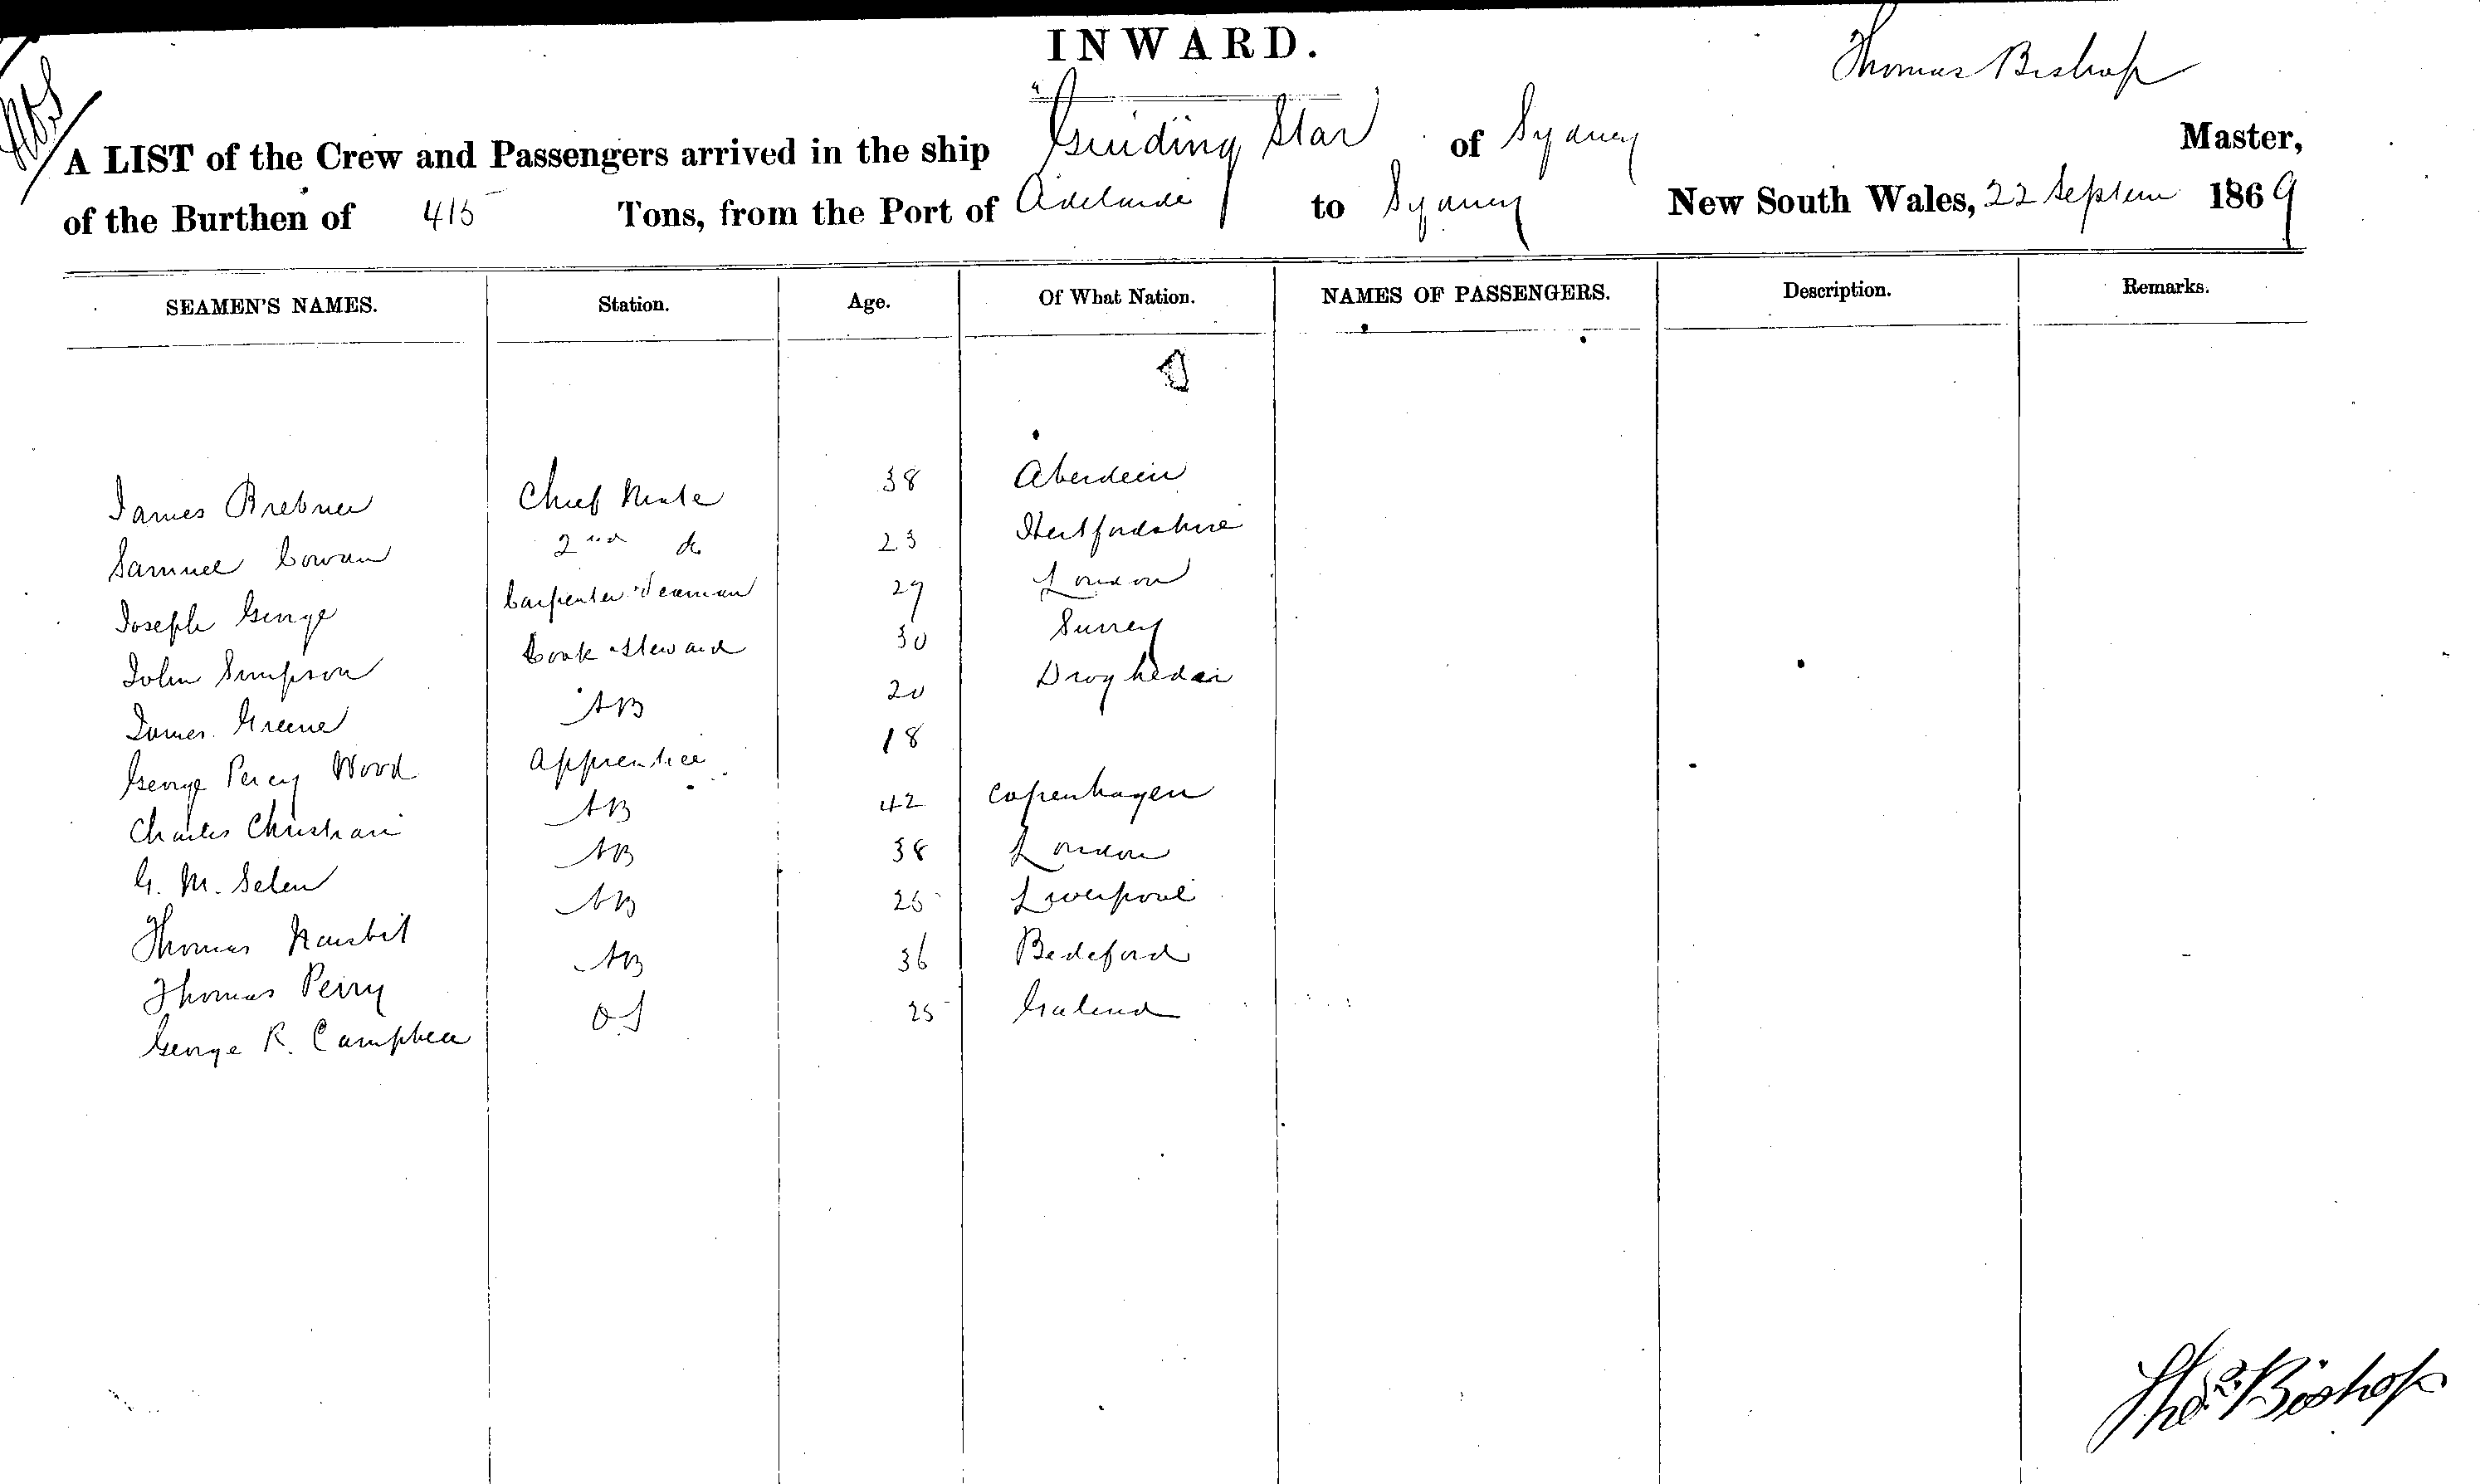 INWARD.
Thomas Bishop
A LIST of the Crew and Passengers arrived in the ship "Guiding Star" of Sydney Master,
of the Burthen of 415 Tons, from the Port of Adelaide to Sydney New South Wales, 22 Septem 1869
SEAMEN'S NAMES. Station. Age. Of What Nation. NAMES OF PASSENGERS. Description. Remarks.
James Brebner Chief Mate 38 Aberdeen
Samuel Cowan 2nd do 23 Hertfordshire
Joseph George Carpenter Seaman 29 London
John Simpson Cook & Steward 30 Surrey
James Greene AB 20 Drogheda
George Percy Wood Apprentice 18
Charles Christian AB 42 Copenhagen
G. M. Selen AB 38 London
Thomas AB 25 Liverpool
Thomas Perry AB 36 Bedeford
George R. Campbell OS 25
Thos Bishop